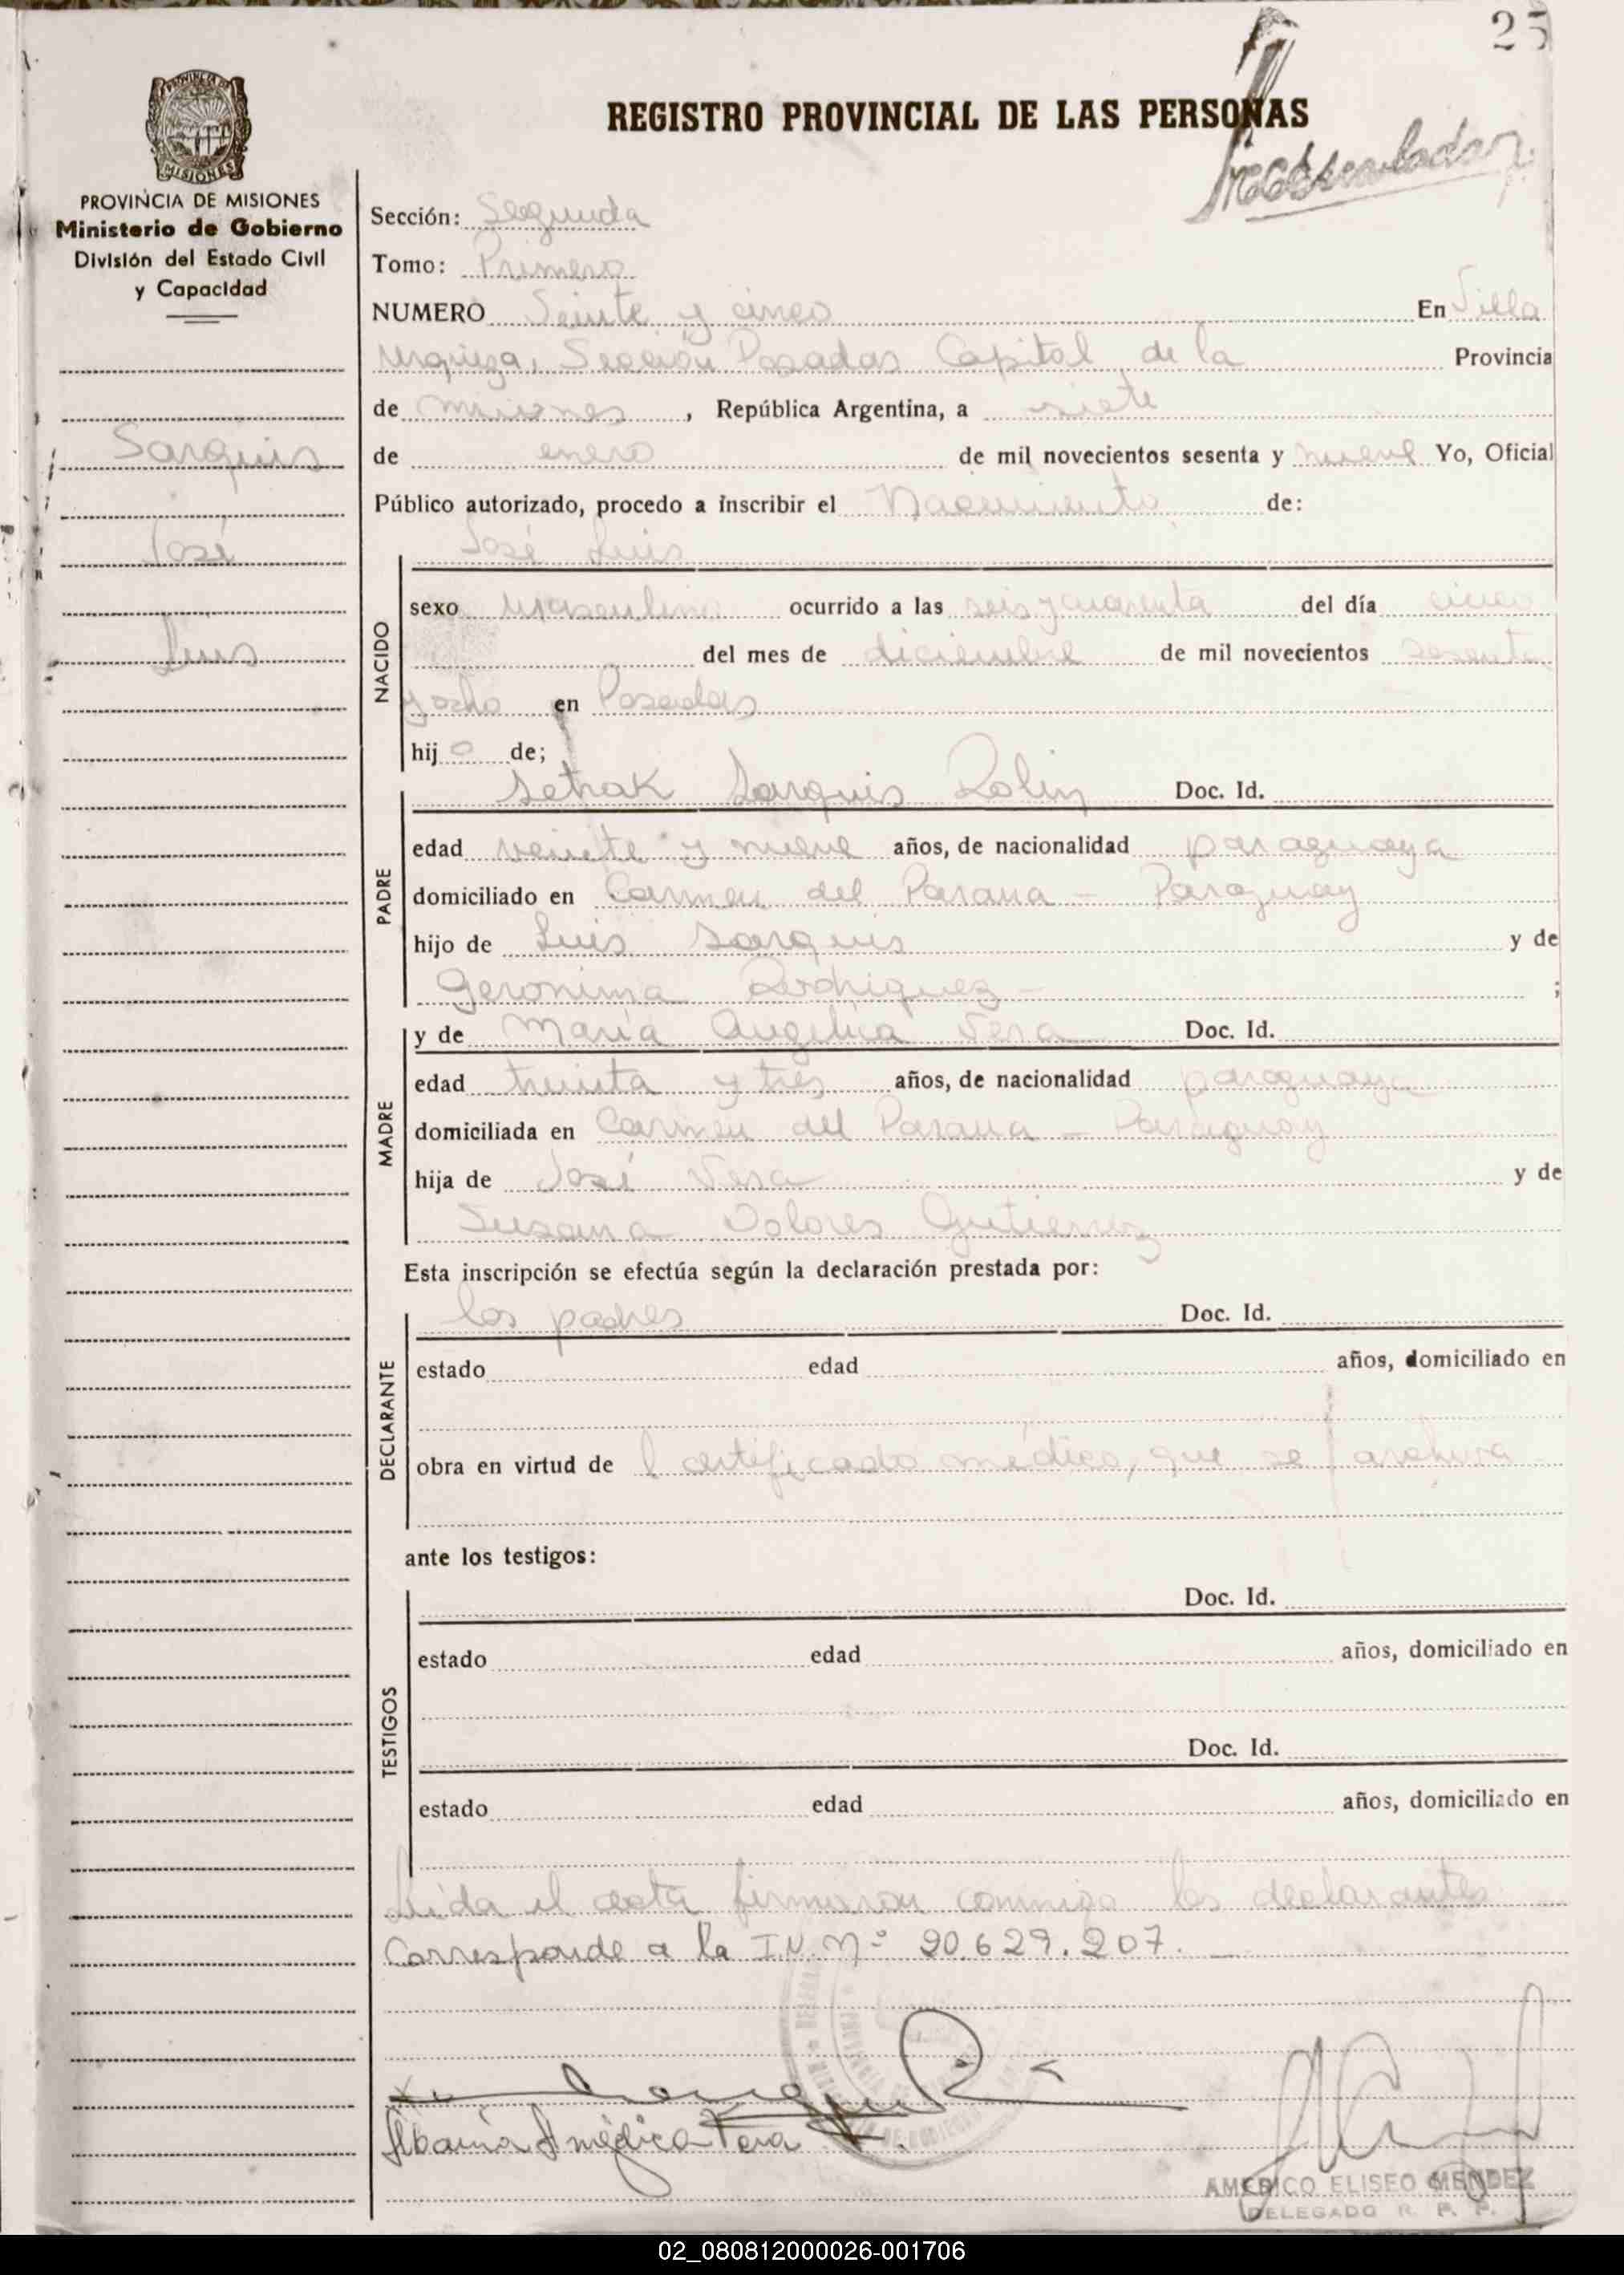 25
REGISTRO PROVINCIAL DE LAS PERSONAS
PROVINCIA DE MISIONES
MISIONES
PROVINCIA DE MISIONES
Ministerio de Gobierno
División del Estado Civil
y Capacidad
Sarquis
José
Luis
Sección: Segunda
Tomo: Primero
NUMERO Veinte y cinco En Villa
Urquiza, Sección Posadas Capital de la Provincia
de Misiones, República Argentina, a siete
de enero de mil novecientos sesenta y nueve Yo, Oficial
Público autorizado, procedo a inscribir el Nacimiento de:
José Luis
NACIDO
sexo Masculino ocurrido a las seis y cuarenta del día cinco
del mes de diciembre de mil novecientos sesenta
y ocho en Posadas
hijo de;
PADRE
Setrak Sarquis Doc. Id.
edad veinte y nueve años, de nacionalidad paraguaya
domiciliado en Carmen del Parana - Paraguay
hijo de Luis Sarquis y de
Geronima Rodriguez - ;
MADRE
y de Maria Angelica Vera Doc. Id.
edad treinta y tres años, de nacionalidad paraguaya
domiciliada en Carmen del Parana - Paraguay
hija de José Vera y de
Susana Dolores Gutierrez
Esta inscripción se efectúa según la declaración prestada por:
DECLARANTE
los padres Doc. Id.
estado edad años, domiciliado en
obra en virtud de l certificado médico, que se archiva
ante los testigos:
TESTIGOS
Doc. Id.
estado edad años, domiciliado en
Doc. Id.
estado edad años, domiciliado en
Leida el acta firmaron conmigo los declarantes
Corresponde a la I.N. Nº 20.629.207.
Vera
AMERICO ELISEO MENDEZ
DELEGADO R. P. P.
02_080812000026-001706